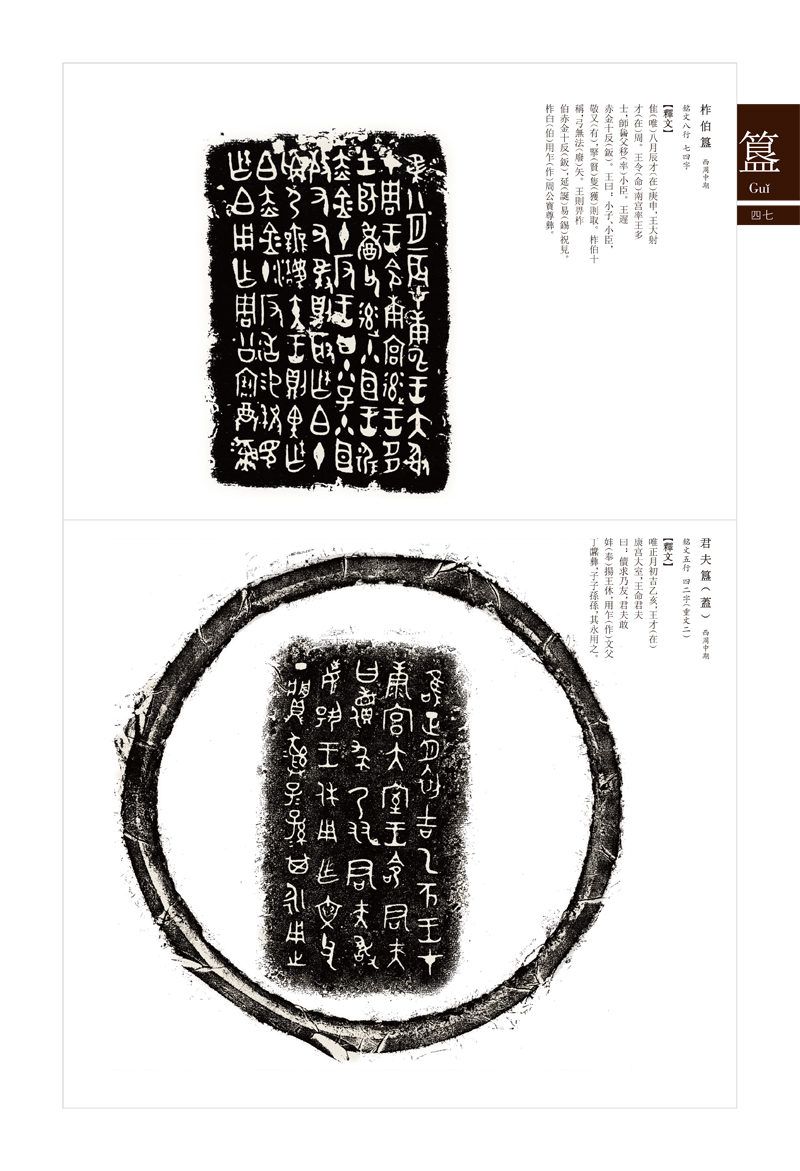 簋
Guǐ
四七
柞伯簋 西周中期
銘文八行 七四字
【釋文】
隹（唯）八月辰才（在）庚申，王大射
才（在）周。王令（命）南宮率王多
士，師𩛥父移（率）小臣。王遟
赤金十反（鈑）。王曰：小子、小臣，
敬又（有），㪣（賢）隻（獲）則取。柞伯十
稱，弓無法（廢）矢。王則畀柞
伯赤金十反（鈑），延（誕）易（錫）祝見。
柞白（伯）用乍（作）周公寶尊彝。
君夫簋（蓋） 西周中期
銘文五行 四二字（重文二）
【釋文】
唯正月初吉乙亥，王才（在）
康宮大室，王命君夫
曰：儥求乃友，君夫敢
妦（奉）揚王休，用乍（作）文父
丁䵼彝，子子孫孫，其永用之。